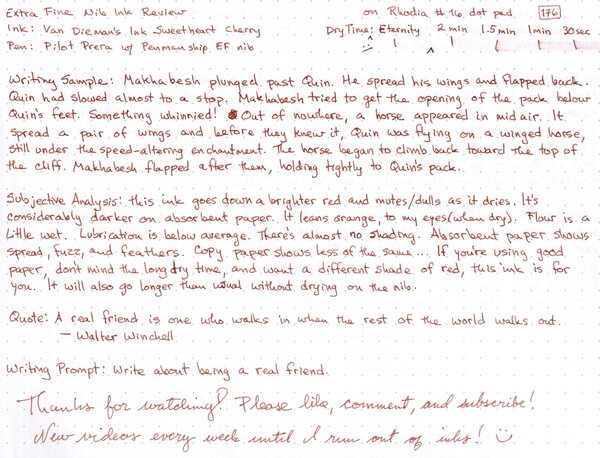 Extra Fine Nib Ink Review on Rhodia #16 dot pad 176
Ink: Van Dieman's Ink Sweetheart Cherry Dry Time: Eternity 2 min 1.5 min 1 min 30 sec
Pen: Pilot Prera w/ Penmanship EF nib
Writing Sample: Makhabesh plunged past Quin. He spread his wings and flapped back.
Quin had slowed almost to a stop. Makhabesh tried to get the opening of the pack below
Quin's feet. Something whinnied! Out of nowhere, a horse appeared in midair. It
spread a pair of wings and before they knew it, Quin was flying on a winged horse,
still under the speed-altering enchantment. The horse began to climb back toward the top of
the cliff. Makhabesh flapped after them, holding tightly to Quin's pack.
Subjective Analysis: this ink goes down a brighter red and mutes/dulls as it dries. It's
considerably darker on absorbent paper. It leans orange, to my eyes (when dry). Flow is a
little wet. Lubrication is below average. There's almost no shading. Absorbent paper shows
spread, fuzz, and feathers. Copy paper shows less of the same... If you're using good
paper, don't mind the long dry time, and want a different shade of red, this ink is for
you. It will also go longer than usual without drying on the nib.
Quote: A real friend is one who walks in when the rest of the world walks out.
— Walter Winchell
Writing Prompt: Write about being a real friend.
Thanks for watching! Please like, comment, and subscribe!
New videos every week until I run out of inks!